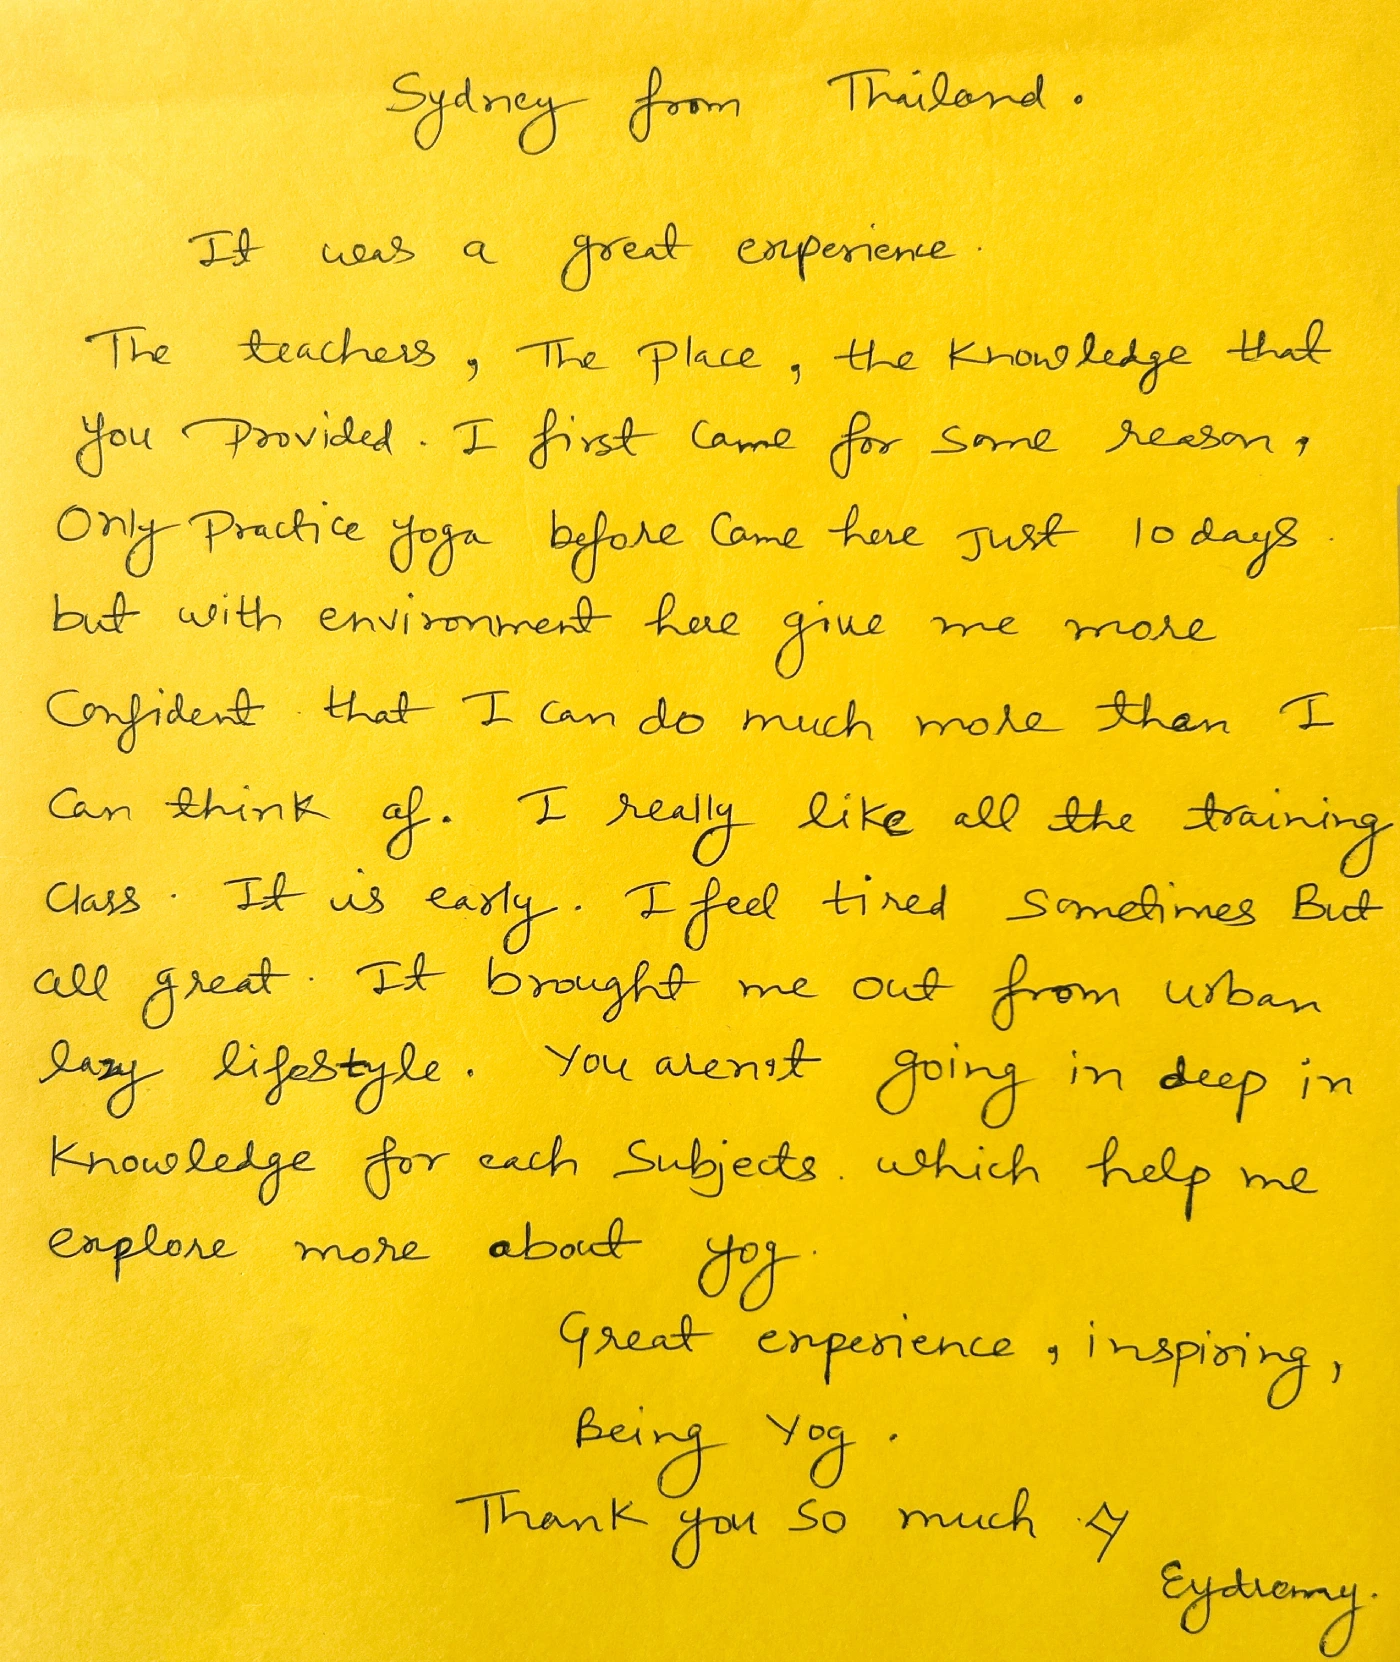 Sydney from Thailand.
It was a great experience.
The teachers, The Place, the Knowledge that
you Provided. I first came for some reason,
Only Practice yoga before Came here Just 10 days.
but with environment here give me more
Confident that I can do much more than I
Can think of. I really like all the training
Class. It is early. I feel tired Sometimes But
all great. It brought me out from urban
lazy lifestyle. You aren't going in deep in
Knowledge for each Subjects. which help me
explore more about yog.
Great experience, inspiring,
Being Yog.
Thank you so much